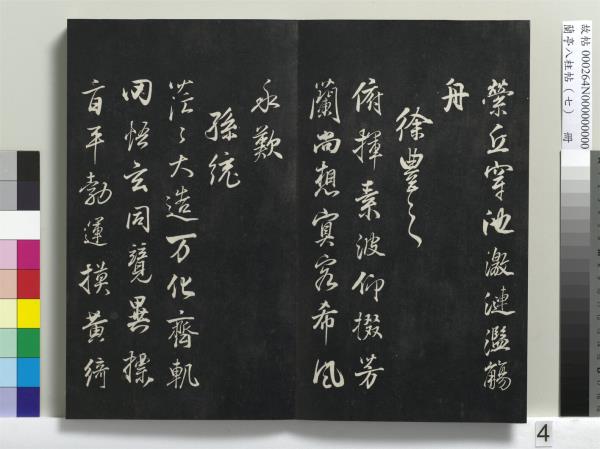 縈丘穿池激漣濫觴
舟
徐豊之
俯揮素波仰掇芳
蘭尚想冥客希風
永歎
孫統
茫〻大造万化齊軌
罔悟玄同競異操
旨平勃運摸黃綺
故帖 000264N000000000
蘭亭八柱帖（七） 冊
4